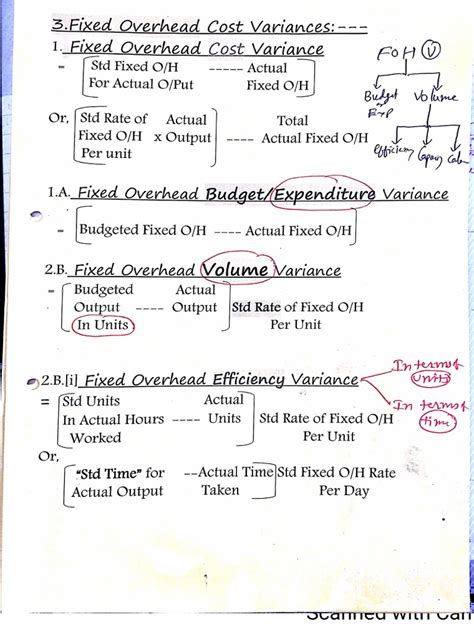 3.Fixed Overhead Cost Variances:---
1. Fixed Overhead Cost Variance
= Std Fixed O/H ----- Actual
For Actual O/Put Fixed O/H
Or, Std Rate of Actual Total
Fixed O/H x Output ---- Actual Fixed O/H
Per unit
FOH V
Budget Volume
or
Exp
Efficiency Capacity Calen
1.A. Fixed Overhead Budget/Expenditure Variance
= Budgeted Fixed O/H ---- Actual Fixed O/H
2.B. Fixed Overhead Volume Variance
= Budgeted Actual
Output ---- Output Std Rate of Fixed O/H
In Units Per Unit
2.B.[i] Fixed Overhead Efficiency Variance
In terms of
units
In terms of
time
= Std Units Actual
In Actual Hours ---- Units Std Rate of Fixed O/H
Worked Per Unit
Or,
"Std Time" for --Actual Time Std Fixed O/H Rate
Actual Output Taken Per Day
Scanned with Cam